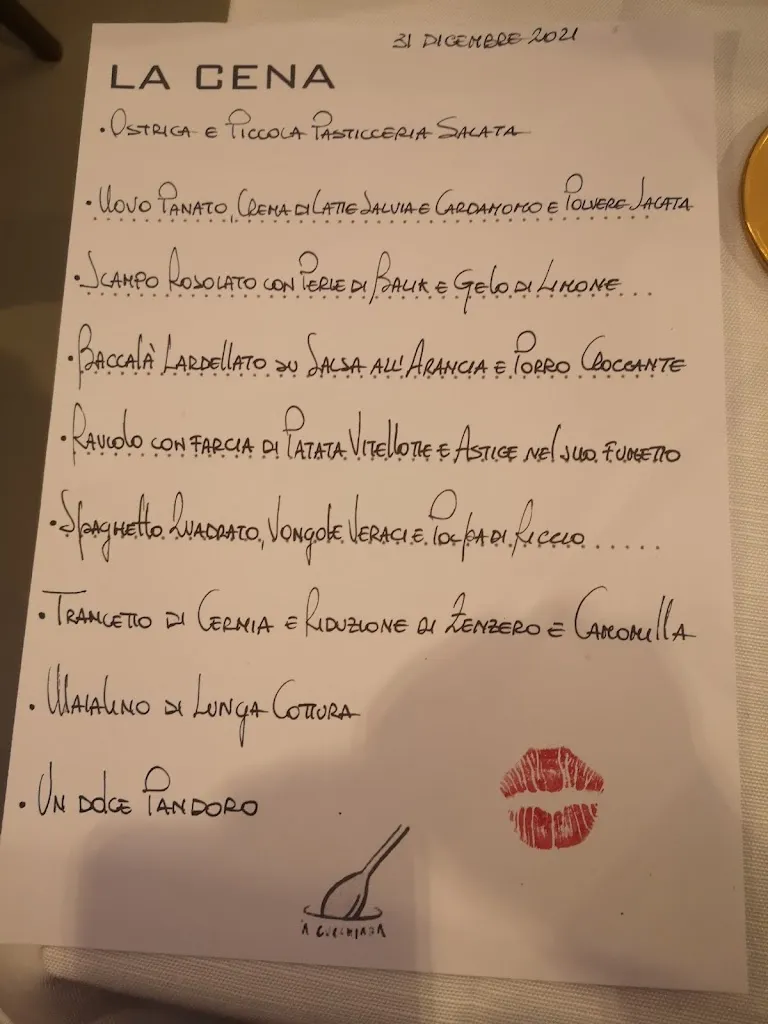 31 DICEMBRE 2021
LA CENA
• OSTRICA E PICCOLA PASTICCERIA SALATA
• UOVO PANATO, CREMA DI LATTE SALVIA E CARDAMOMO E POLVERE SALATA
• SCAMPO ROSOLATO CON PERLE DI BALIK E GELO DI LIMONE...
• BACCALÀ LARDELLATO SU SALSA ALL'ARANCIA E PORRO CROCCANTE
• RAVIOLO CON FARCIA DI PATATA VITELLOTTE E ASTICE NEL SUO FUMETTO
• SPAGHETTO QUADRATO, VONGOLE VERACI E POLPA DI RICCIO.....
• TRANCETTO DI CERNIA E RIDUZIONE DI ZENZERO E CAMOMILLA
• MAIALINO DI LUNGA COTTURA
• UN DOLCE PANDORO
'A CUCCHIARA